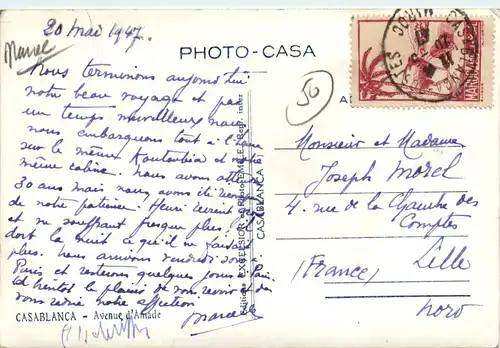 20 mai 1947.
Marcel
PHOTO-CASA
Nous terminons aujourd'hui
notre beau voyage et par
un temps merveilleux nous
nous embarquons tout à l'heure
sur le même Koutoubia et
même cabine. Nous avons
30 ans mais nous avons
de notre patience. Henri
et ne souffrant presque plus.
dort la nuit ce qu'il ne faisait
plus. Nous arrivons vendredi soir à
Paris et resterons quelques jours
bientôt le plaisir de vous revoir et de
vous redire notre affection
Marcelle
50
MAROC
Monsieur et Madame
Joseph Morel
4. rue de la Chambre des
Comptes
Lille
(France)
Nord
CASABLANCA
CASABLANCA - Avenue d'Amade